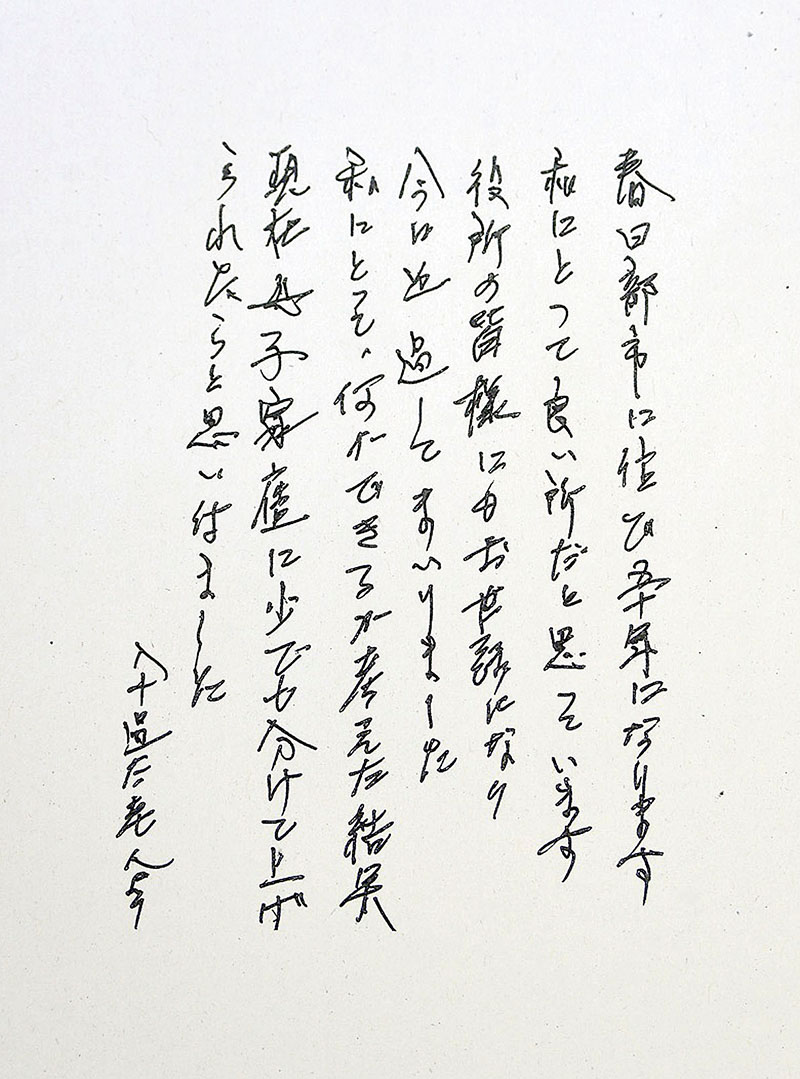 春日部市に住ひ五十年になります
私にとって良い所だと思っています
役所の皆様にもお世話になり
今日迄過してまいりました
私にとって、何ができるか考えた結果
現在母子家庭に少でも分けて上げ
られたらと思い付ました
八十過た老人